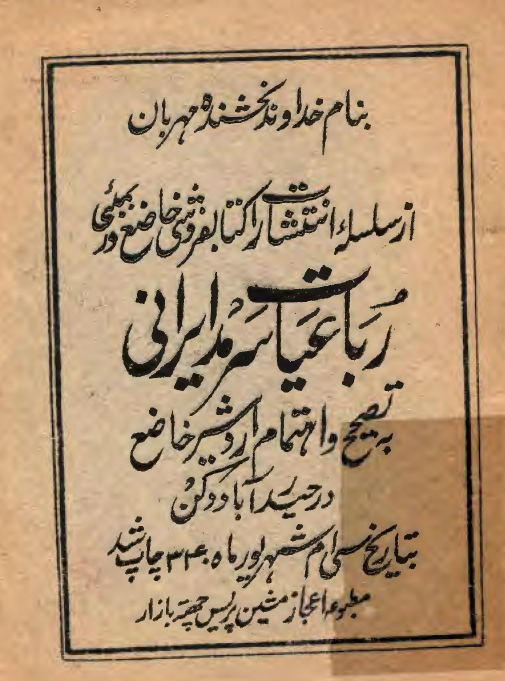 بنام خداوند بخشنده مهربان
از سلسلهٔ انتشارات کتابفروشی خاضع در بمبئی
رُباعیات سَرمَد ایرانی
به تصحیح و اهتمام اردشیر خاضع
در حیدرآباد دکن
بتاریخ سی ام شهریور ماه ۱۳۴۰ چاپ شد
مطبوعه اعجاز مشین پریس چھتہ بازار